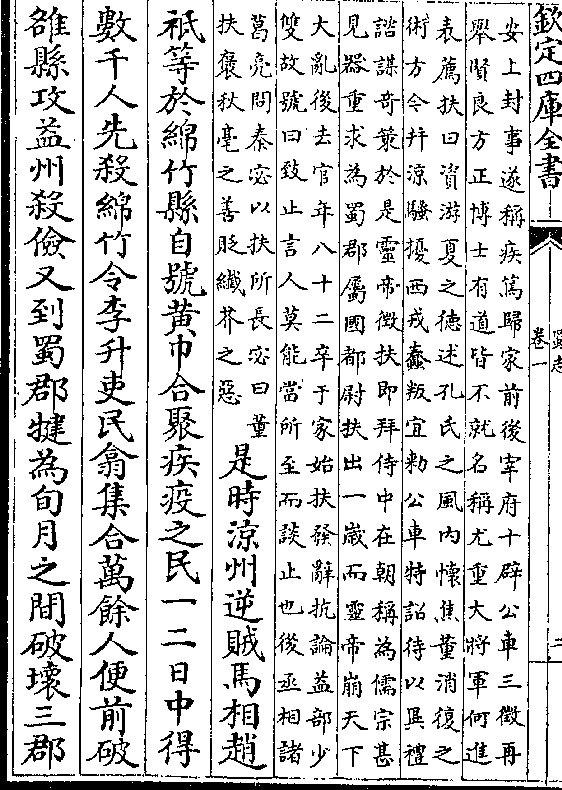 欽定四庫全書
蜀志
卷一
二
安上封事遂稱疾篤歸家前後宰府十辟公車三徵再
舉賢良方正博士有道皆不就名稱尤重大將軍何進
表薦扶曰資游夏之德述孔氏之風內懷焦董消復之
術方今并涼騷擾西戎蠢叛宜勑公車特詔待以異禮
諮謀奇策於是靈帝徵扶即拜侍中在朝稱為儒宗甚
見器重求為蜀郡屬國都尉扶出一嵗而靈帝崩天下
大亂後去官年八十二卒于家始扶發辭抗論益部少
雙故號曰致止言人莫能當所至而談止也後丞相諸
葛亮問秦宓以扶所長宓曰董
扶褒秋毫之善貶纎芥之惡
是時涼州逆賊馬相趙
祇等於綿竹縣自號黄巾合聚疾疫之民一二日中得
數千人先殺綿竹令李升吏民翕集合萬餘人便前破
雒縣攻益州殺儉又到蜀郡犍為旬月之間破壞三郡